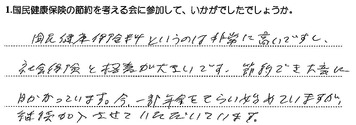 1.国民健康保険の節約を考える会に参加して、いかがでしたでしょうか。
国民健康保険料というのは非常に高いですし、
社会保険と格差が大きいです。節約でき大変に
助かっています。今一部年金をもらい始めていますが、
継続加入させていただいています。